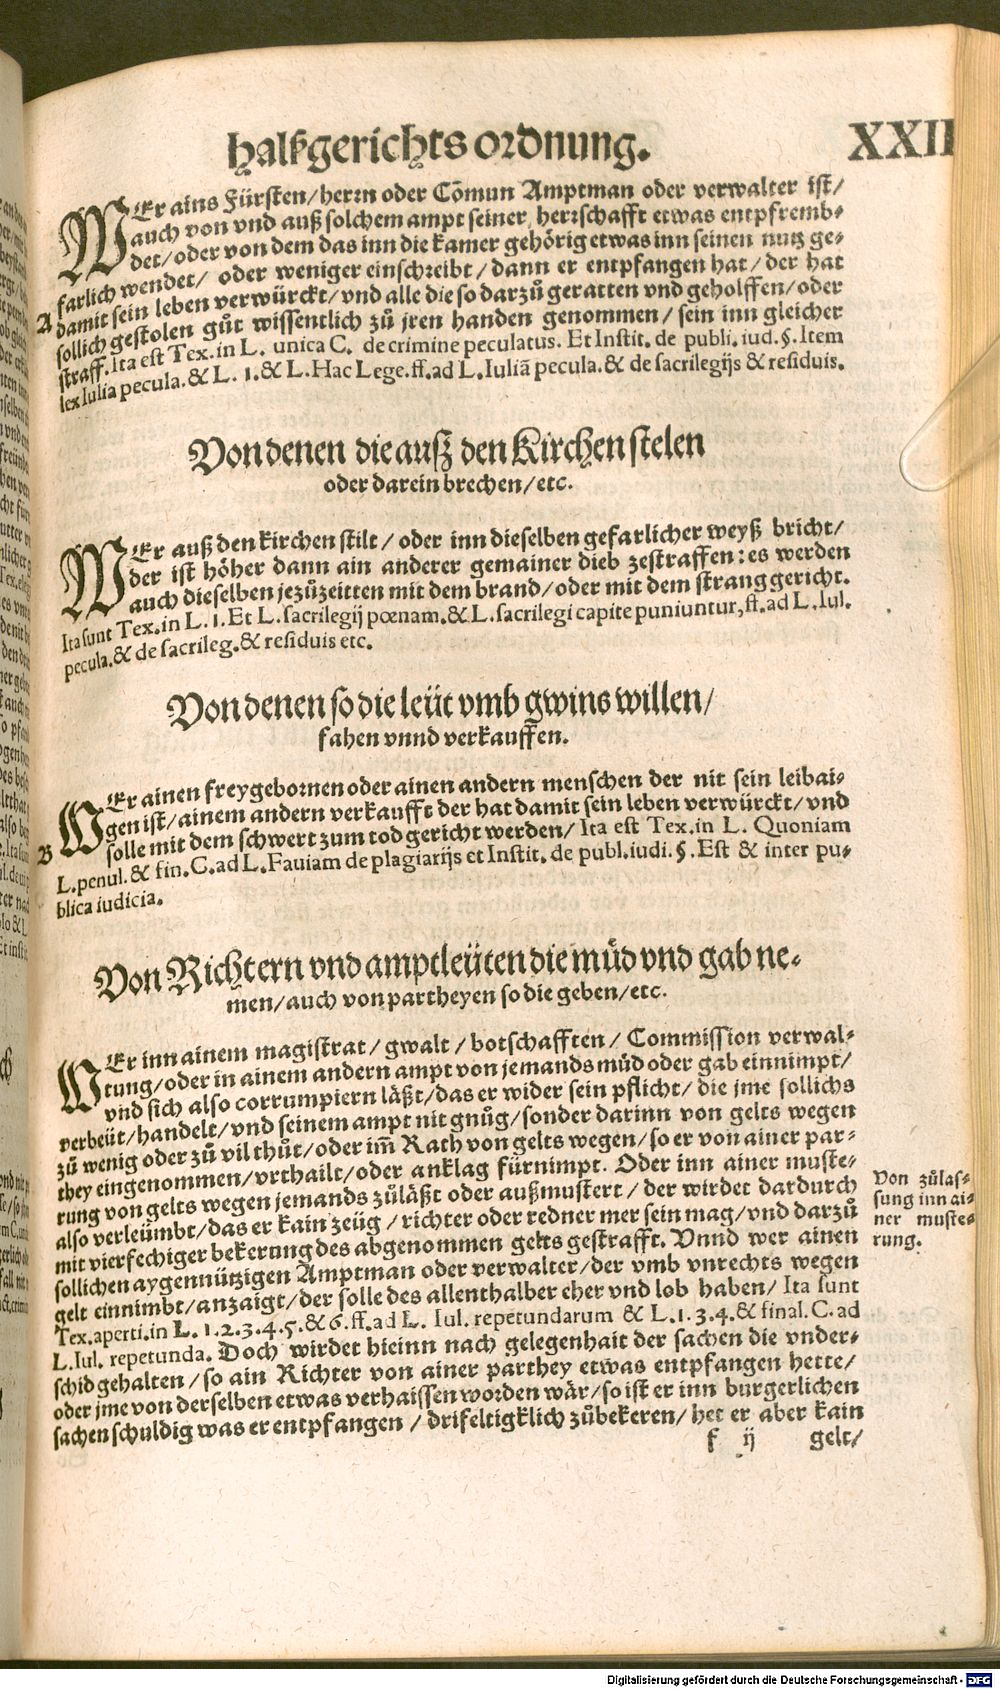 Halßgerichts ordnung. XXII
WEr ains Fürsten/herrn oder Cōmun Amptman oder verwalter ist/
auch von vnd auß solchem ampt seiner herrschafft etwas entpfremb-
det/oder von dem das inn die kamer gehörig etwas inn seinen nutz ge-
farlich wendet/ oder weniger einschreibt/dann er entpfangen hat/der hat
A damit sein leben verwürckt/vnd alle die so darzů geratten vnd geholffen/oder
sollich gestolen gůt wissentlich zů jren handen genommen/sein inn gleicher
straff. Ita est Tex.in L. unica C. de crimine peculatus. Et Instit. de publi. iud.§. Item
lex Iulia pecula.& L. 1.& L.Hac Lege.ff.ad L.Iuliā pecula.& de sacrilegijs & residuis.
Von denen die auß den Kirchen stelen
oder darein brechen/etc.
WEr auß den kirchen stilt/oder inn dieselben gefarlicher weyß bricht/
der ist höher dann ain anderer gemainer dieb zestraffen:es werden
auch dieselben jezůzeitten mit dem brand/oder mit dem strang gericht.
Ita sunt Tex.in L. 1. Et L.sacrilegij pœnam.& L.sacrilegi capite puniuntur,ff.ad L.Iul.
pecula.& de sacrileg.& residuis etc.
Von denen so die leüt vmb gwins willen/
fahen vnnd verkauffen.
WEr ainen freygebornen oder ainen andern menschen der nit sein leibai-
gen ist/ainem andern verkaufft der hat damit sein leben verwürckt/vnd
B solle mit dem schwert zum tod gericht werden/Ita est Tex.in L. Quoniam
L.penul.& fin.C.ad L.Fauiam de plagiarijs et Instit.de publ.iudi.§.Est & inter pu-
blica iudicia.
Von Richtern vnd amptleüten die müd vnd gab ne-
men/auch von partheyen so die geben/etc.
WEr inn ainem magistrat/gwalt/botschafften/Commission verwal-
tung/oder in ainem andern ampt von jemands müd oder gab einnimpt/
vnd sich also corrumpiern läßt/das er wider sein pflicht/die jme sollichs
verbeüt/handelt/vnd seinem ampt nit gnůg/sonder darinn von gelts wegen
zů wenig oder zů vil thůt/oder im̄ Rath von gelts wegen/so er von ainer par-
they eingenommen/vrthailt/oder anklag fürnimpt. Oder inn ainer muste-
rung von gelts wegen jemands zůläßt oder außmustert/der wirdet dardurch
also verleümbt/das er kain zeüg/richter oder redner mer sein mag/vnd darzů
mit vierfechiger bekerung des abgenommen gelts gestrafft. Vnnd wer ainen
sollichen aygennützigen Amptman oder verwalter/der vmb vnrechts wegen
gelt einnimbt/anzaigt/der solle des allenthalber eher vnd lob haben/Ita sunt
Tex.aperti.in L. 1.2.3.4.5.& 6.ff.ad L. Iul. repetundarum & L.1.3.4.& final.C.ad
L.Iul. repetunda. Doch wirdet hieinn nach gelegenhait der sachen die vnder-
schid gehalten/so ain Richter von ainer parthey etwas entpfangen hette/
oder jme von derselben etwas verhaissen worden wär/so ist er inn burgerlichen
sachen schuldig was er entpfangen/drifeltigklich zůbekeren/het er aber kain
f ij gelt/
Von zůlas-
sung inn ai-
ner muste-
rung.
Digitalisierung gefördert durch die Deutsche Forschungsgemeinschaft - DFG